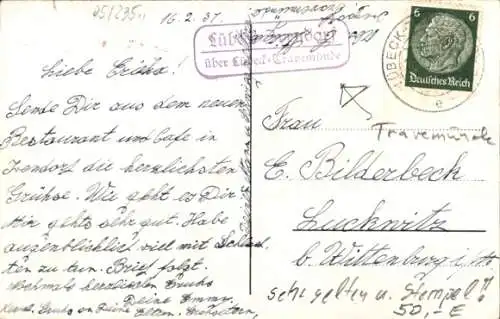 051295
16.2.37.
Lübeck-Ivendorf
über Lübeck-Travemünde
6 6
Deutsches Reich
LÜBECK-
e
Liebe Erika!
Sende Dir aus dem neuen
Restaurant und Cafe in
Ivendorf die herzlichsten
Grühse. Wie geht es Dir
Mir gehts sehr gut. Habe
augenblicklich viel mit
ten zu tun. Brief folgt.
Nochmals herzlichen Gruhs
Deine Emmy.
Gruhs an Deine Eltern.
Frau
Travemünde
E. Bilderbeck
Luckwitz
b. Wittenburg i/M
sehr selten u. Stempel!!
50,-E